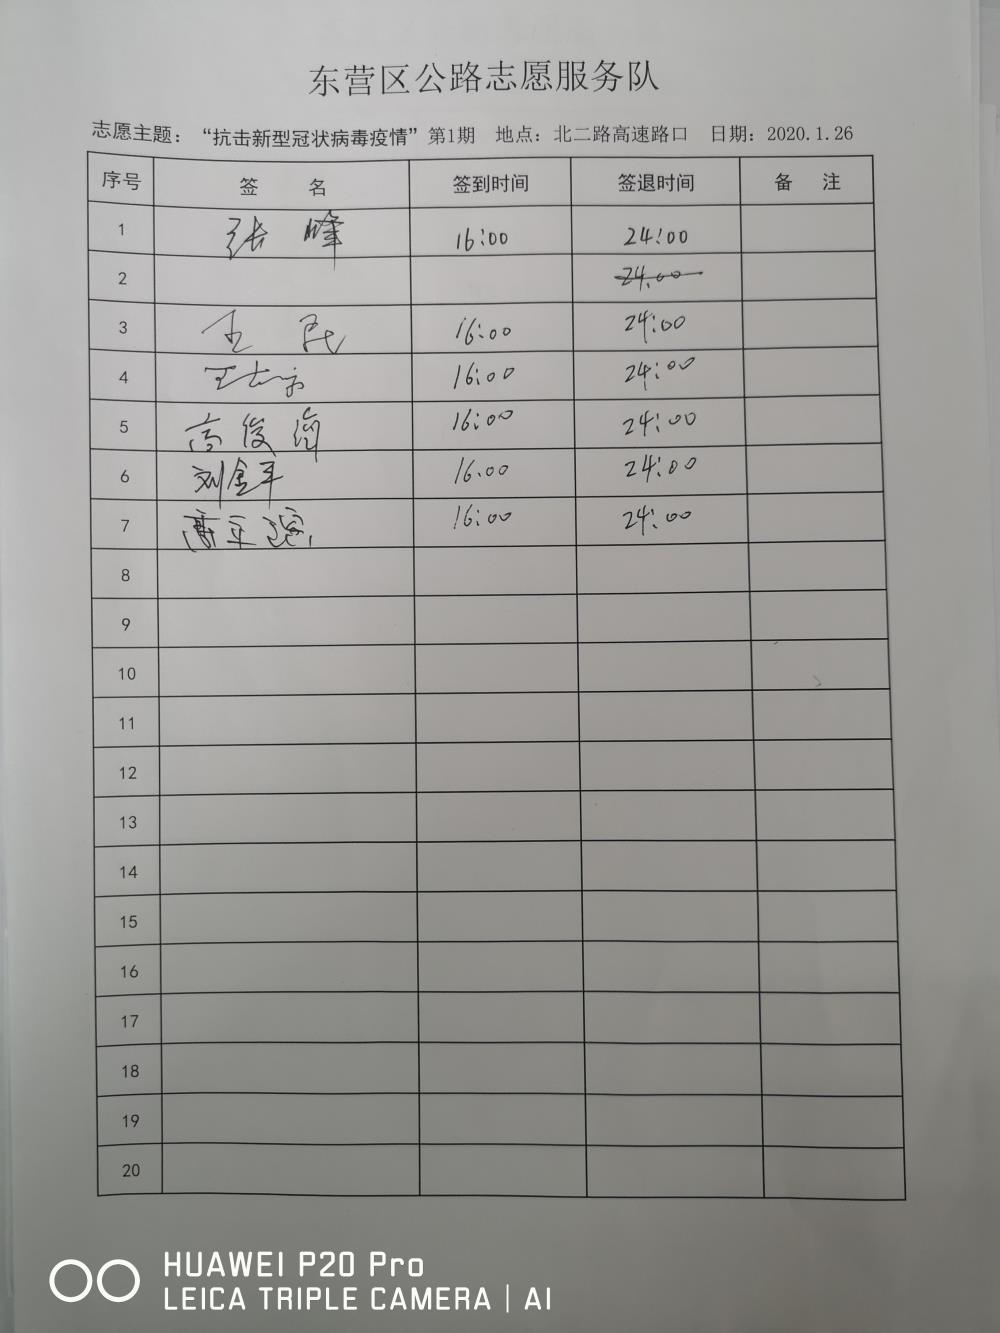 东营区公路志愿服务队
志愿主题：“抗击新型冠状病毒疫情”第1期 地点：北二路高速路口 日期：2020.1.26
序号 签 名 签到时间 签退时间 备 注
1 张峰 16:00 24:00
2 24:00
3 王民 16:00 24:00
4 王 16:00 24:00
5 高俊 16:00 24:00
6 刘金平 16:00 24:00
7 平 16:00 24:00
8
9
10
11
12
13
14
15
16
17
18
19
20
HUAWEI P20 Pro
LEICA TRIPLE CAMERA | AI